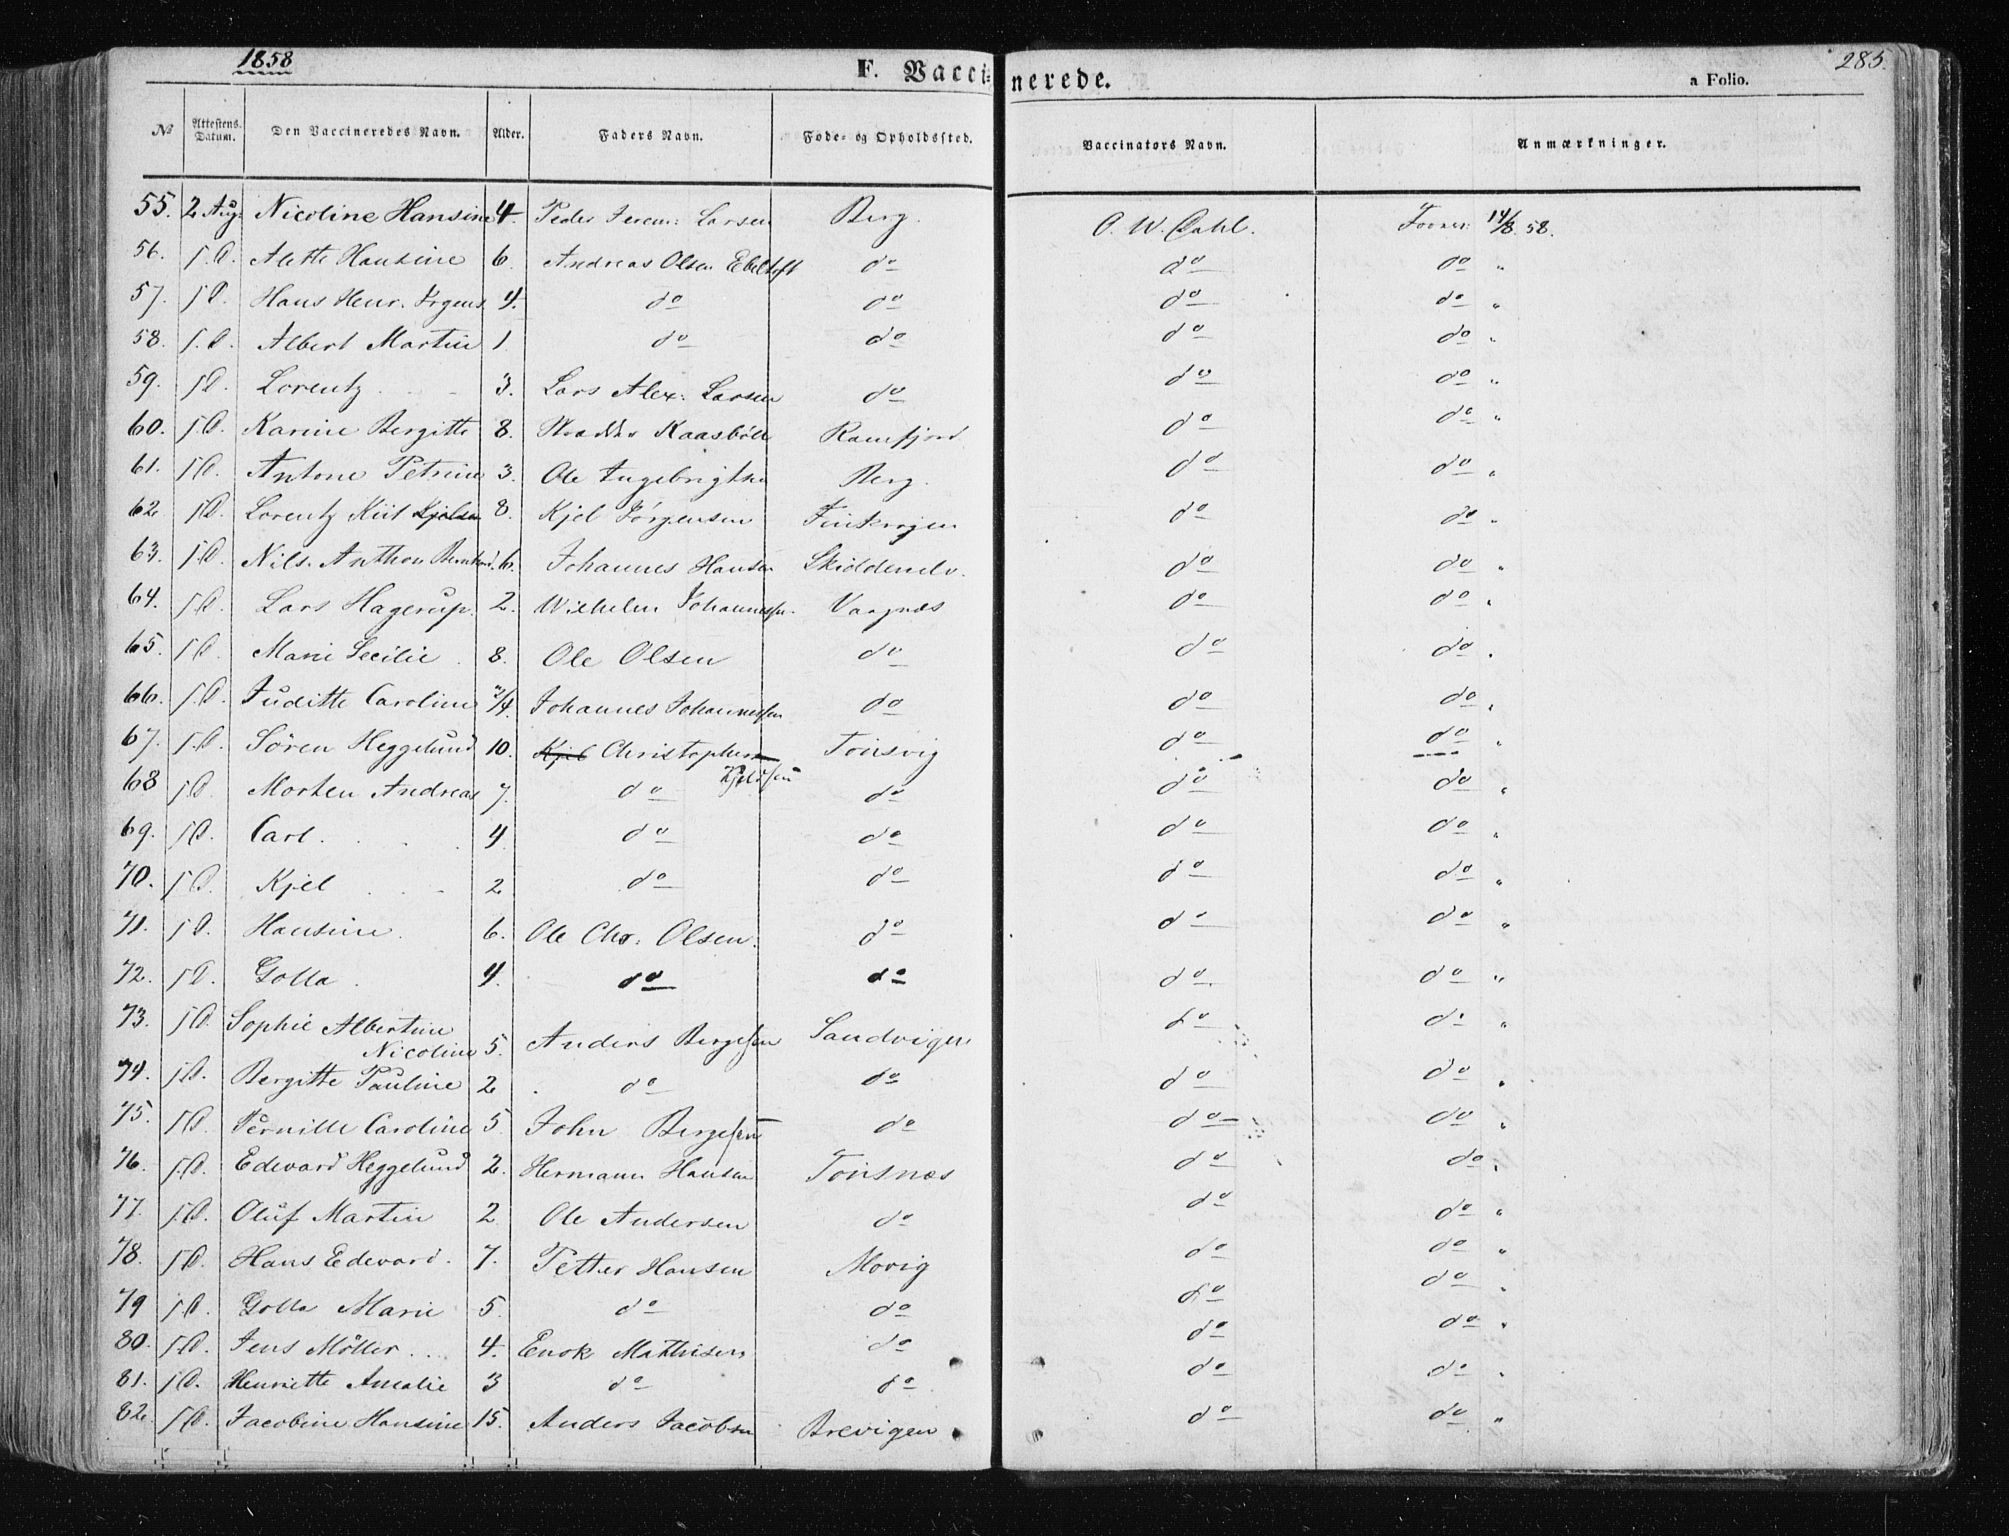 1858
F. Vaccinerede.
a Folio.
285.
№ Attestens Datum. Den Vaccineredes Navn. Alder. Faders Navn. Føde- og Opholdssted. Vaccinators Navn. Anmærkninger.
55. 2 Aug. Nicoline Hansine 4. Peder Jerem: Larsen Berg. O. W. Dahl. 14/8. 58.
56. s.D. Alette Hansine 6. Andreas Olsen Ebeltoft do do do "
57. s.D. Hans Henr. Jrgens 4. do do do do "
58. s.D. Albert Martin 1 do do do do "
59. s.D. Lorentz 3. Lars Alex: Larsen do do do "
60. s.D. Karine Bergitte 8. Kaasböll Ramfjord do do "
61. s.D. Antone Petrine 3. Ole Ingebrigtsen Berg. do do "
62. s.D. Lorentz Kiil Kjelsen 8. Kjel Jörgensen Finkrogen do do "
63. s.D. Nils Anthon Bernhard. 6. Johannes Hansen Skiddenelv. do do "
64. s.D. Lars Hagerup. 2. Wilhelm Johannessen. Vagnæs do do "
65. s.D. Marie Secilie 8. Ole Olsen do do do "
66. s.D. Juditte Caroline 3/4. Johannes Johannessen do do do "
67. s.D. Sören Heggelund 10. Kjel Christophersen Kjelsen Tonsvig do do "
68 s.D. Morten Andreas 7. do do do do "
69. s.D. Carl. 4 do do do do "
70. s.D. Kjel 2 do do do do "
71. s.D. Hansine. 6. Ole Chr: Olsen. do do do "
72. s.D. Golla. 4. do do do do "
73. s.D. Sophie Albertine
Nicoline 5. Anders Bergesen Sandvigen do do "
74. s.D. Bergitte Pauline 2 do do do do "
75. s.D. Pernille Caroline 5. John Bergesen do do do "
76. s.D. Edevard Heggelund 2. Hermann Hansen Tonsnæs do do "
77. s.D. Oluf Martin 2 Ole Andersen do do do "
78. s.D. Hans Edevard. 7. Petter Hansen Movig do do "
79 s.D. Golla Marie 5. do do do do "
80. s.D. Jens Möller 4. Enok Mathisen do do do "
81. s.D. Henriette Amalie 3 do do do do "
82. s.D. Jacobine Hansine 15. Anders Jacobsen Brevigen do do "